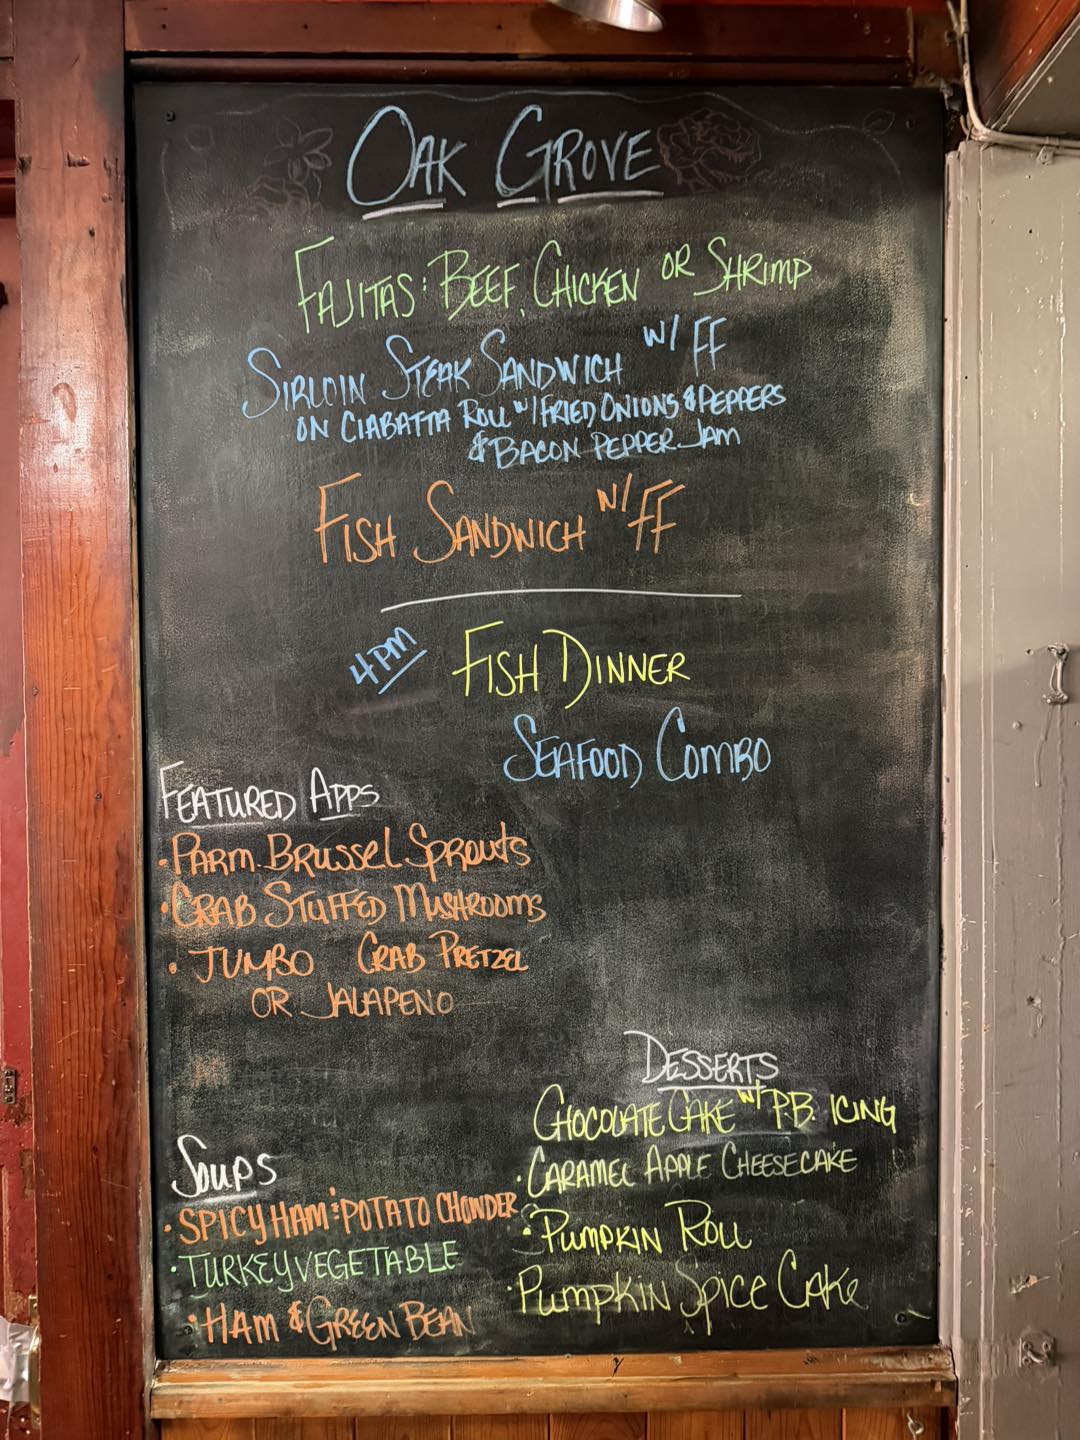 OAK GROVE
FAJITAS: BEEF, CHICKEN OR SHRIMP
SIRLOIN STEAK SANDWICH W/ FF
ON CIABATTA ROLL W/ FRIED ONIONS & PEPPERS
& BACON PEPPER JAM
FISH SANDWICH W/ FF
4PM FISH DINNER
SEAFOOD COMBO
FEATURED APPS
• PARM. BRUSSEL SPROUTS
• CRAB STUFFED MUSHROOMS
• JUMBO CRAB PRETZEL
OR JALAPENO
SOUPS
• SPICY HAM & POTATO CHOWDER
• TURKEY VEGETABLE
• HAM & GREEN BEAN
DESSERTS
CHOCOLATE CAKE W/ P.B. ICING
• CARAMEL APPLE CHEESECAKE
• PUMPKIN ROLL
• PUMPKIN SPICE CAKE